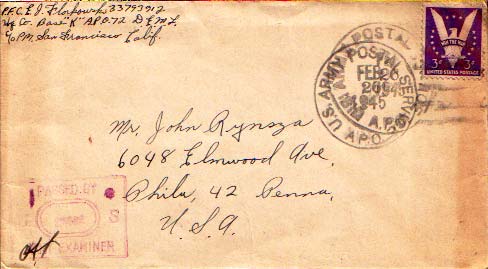 P.F.C. E.J. 33793912
Hq. Co. Base "K" A.P.O. 72
c/o P.M. San Francisco Calif.
U.S. ARMY POSTAL SERVICE
A.P.O.
FEB 26
1945
WIN THE WAR
3¢ 3¢
UNITED STATES POSTAGE
Mr. John Rynsza
6048 Elmwood Ave.
Phila, 42 Penna,
U.S.A.
PASSED BY
S
EXAMINER